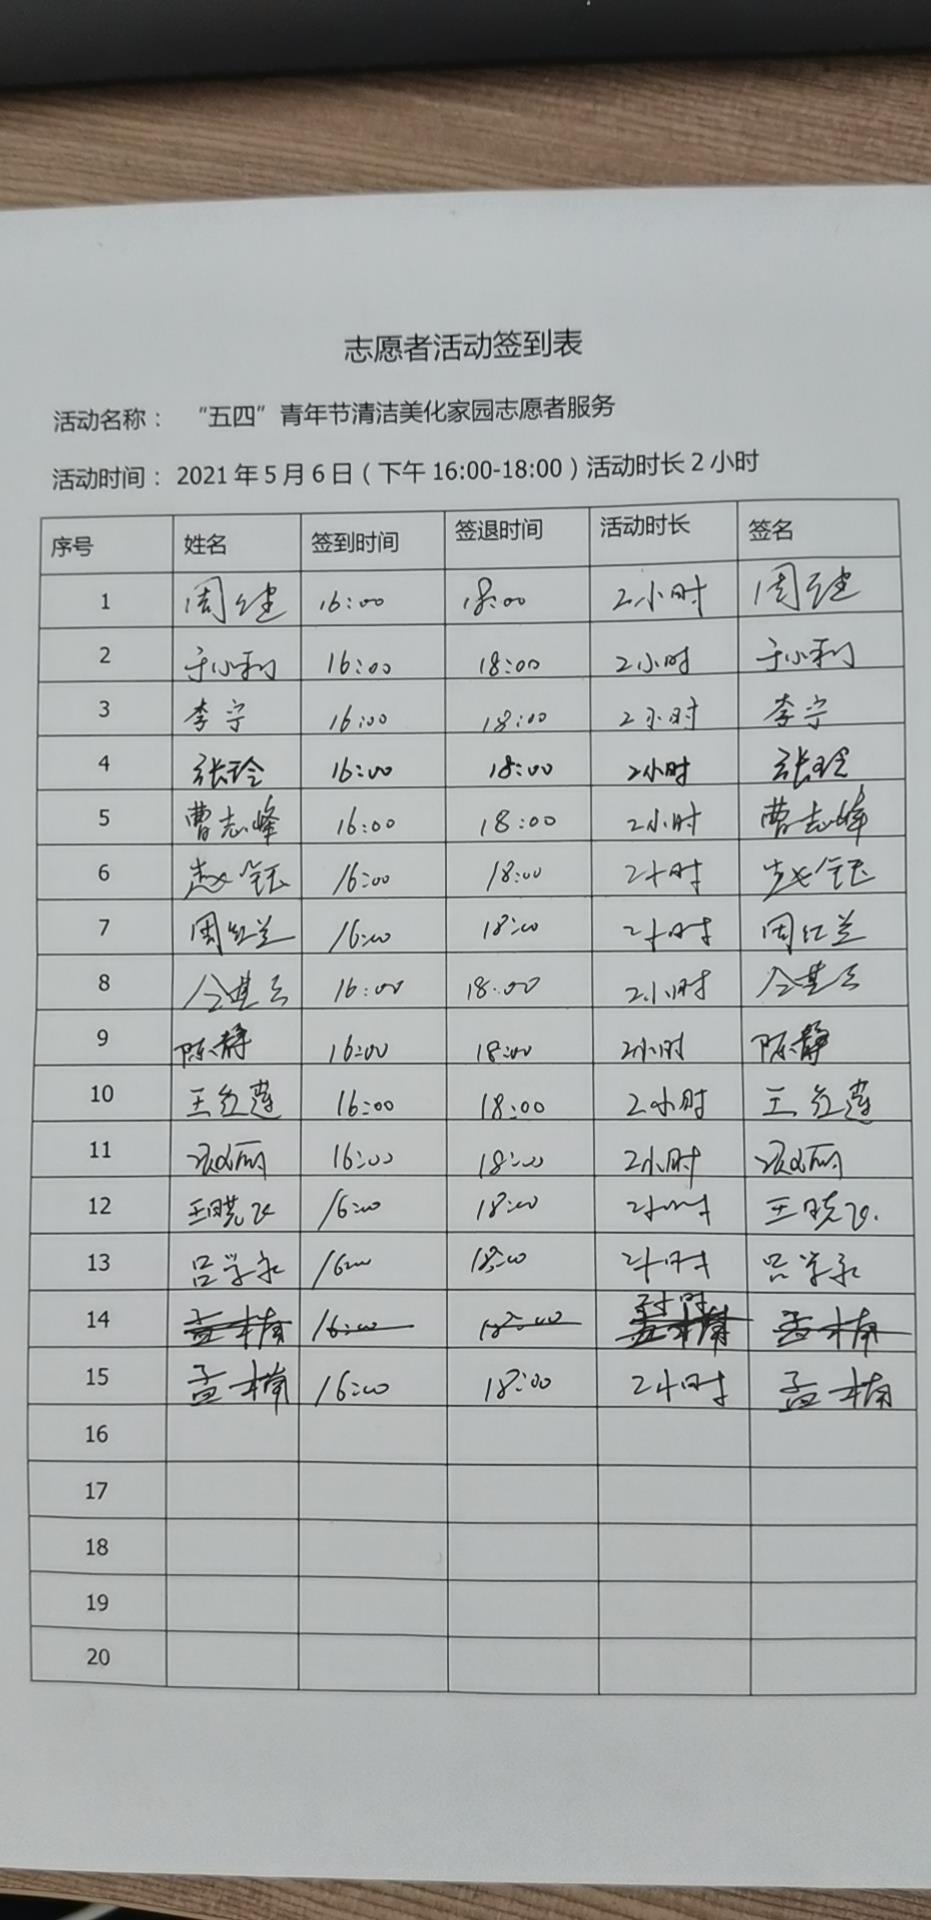 志愿者活动签到表
活动名称： “五四”青年节清洁美化家园志愿者服务
活动时间： 2021年5月6日（下午16:00-18:00）活动时长2小时
序号 姓名 签到时间 签退时间 活动时长 签名
1 周 16:00 18:00 2小时 周
2 于小利 16:00 18:00 2小时 于小利
3 李宁 16:00 18:00 2小时 李宁
4 张玲 16:00 18:00 2小时 张玲
5 曹志峰 16:00 18:00 2小时 曹志峰
6 赵钰 16:00 18:00 2小时 赵钰
7 周红兰 16:00 18:00 2小时 周红兰
8 16:00 18:00 2小时
9 陈静 16:00 18:00 2小时 陈静
10 王红莲 16:00 18:00 2小时 王红莲
11 16:00 18:00 2小时
12 王晓飞 16:00 18:00 2小时 王晓飞
13 吕学永 16:00 18:00 2小时 吕学永
14 孟楠 16:00 18:00 2小时 孟楠
15 孟楠 16:00 18:00 2小时 孟楠
16
17
18
19
20